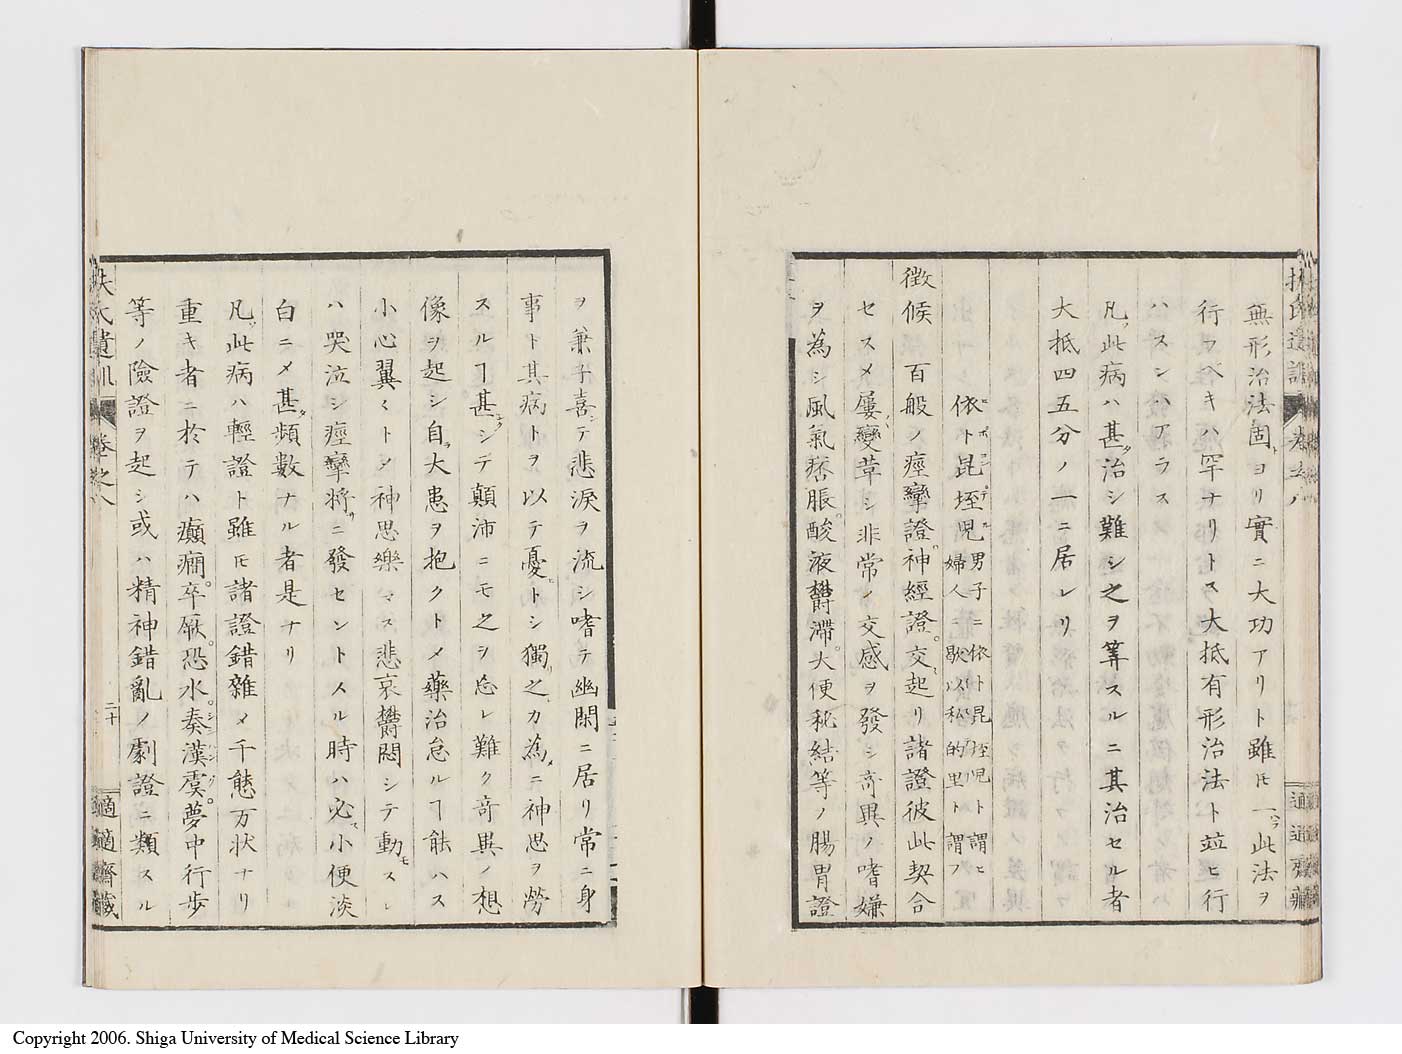 無形治法固ヨリ實ニ大功アリト雖𪜈一ニ此法ヲ
行フヘキハ罕ナリトス大抵有形治法ト竝ヒ行
ハスンハアラス
凡ソ此病ハ甚タ治シ難シ之ヲ筭スルニ其治セル者
大抵四五分ノ一ニ居レリ
依ト昆垤児男子ニ依ト昆垤児ト謂ヒ
婦人ノ歇以私的里ト謂フ
徴候 百般ノ痙攣證神經證交起リ諸證彼此契合
セスメ屢變革シ非常ノ交感ヲ發シ竒異ノ嗜嫌
ヲ為シ風氣痞脹酸液欝滯大便秘結等ノ腸胃證
ヲ兼子喜テ悲淚ヲ流シ嗜テ幽閑ニ居リ常ニ身
事ト其病トヲ以テ憂トシ獨リ之カ為メニ神思ヲ勞
スルヿ甚シテ顛沛ニモ之ヲ忘レ難ク竒異ノ想
像ヲ起シ自ラ大患ヲ抱クトメ藥治怠ルヿ能ハス
小心翼々トシ神思樂マス悲哀欝悶シテ動モスレ
ハ哭泣シ痙攣將ニ發セントスル時ハ必ス小便淡
白ニメ甚タ頻數ナル者是ナリ
凡ソ此病ハ輕證ト雖𪜈諸證錯雜メ千態万状ナリ
重キ者ニ於テハ癲癇卒厥恐水奏漢虞夢中行歩
等ノ險證ヲ起シ或ハ精神錯亂ノ劇證ニ類スル
扶氏遺訓 卷之八
二十
適適齋藏